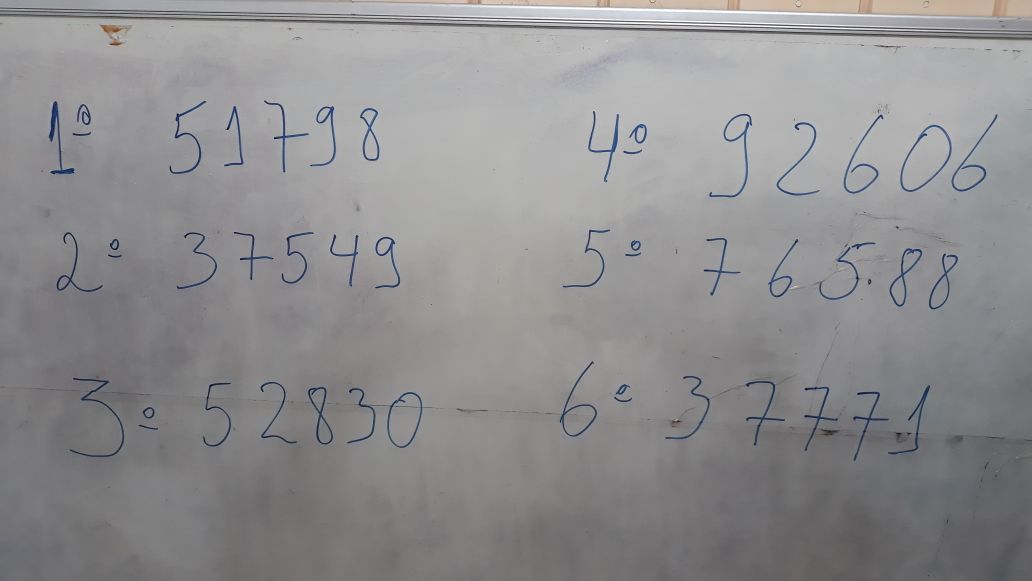 1º 51798
2º 37549
3º 52830
4º 92606
5º 76588
6º 37771